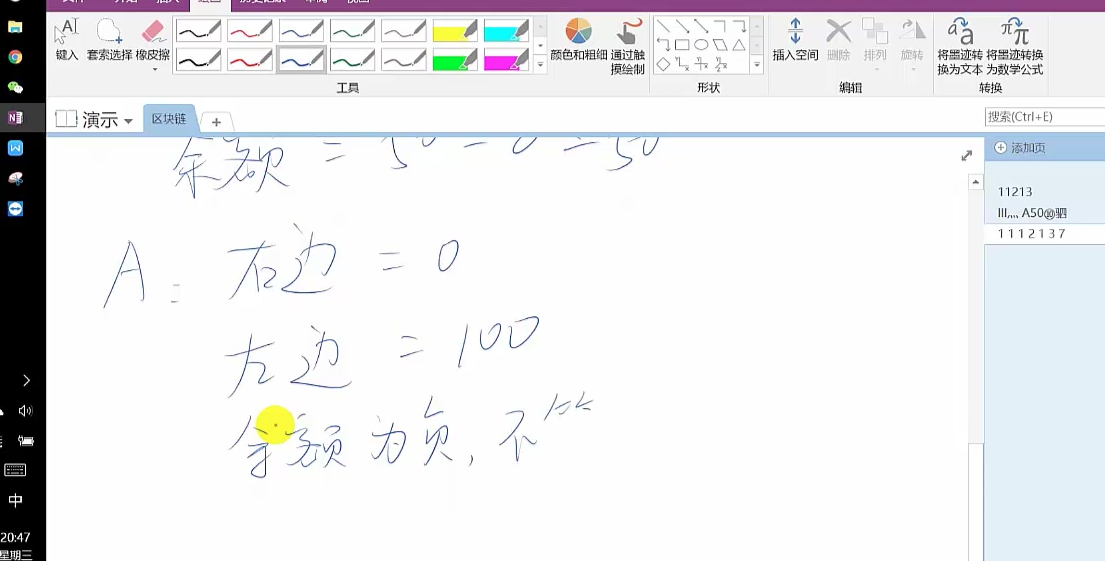 键入
套索选择
橡皮擦
颜色和粗细
通过触摸绘制
插入空间
删除
排列
旋转
将墨迹转换为文本
将墨迹转换为数学公式
工具
形状
编辑
转换
演示
区块链
搜索(Ctrl+E)
添加页
11213
1 1 1 2 1 3 7
余额 = 50 - 0 = 50
A: 右边 = 0
左边 = 100
余额为负, 不
中
20:47
星期三